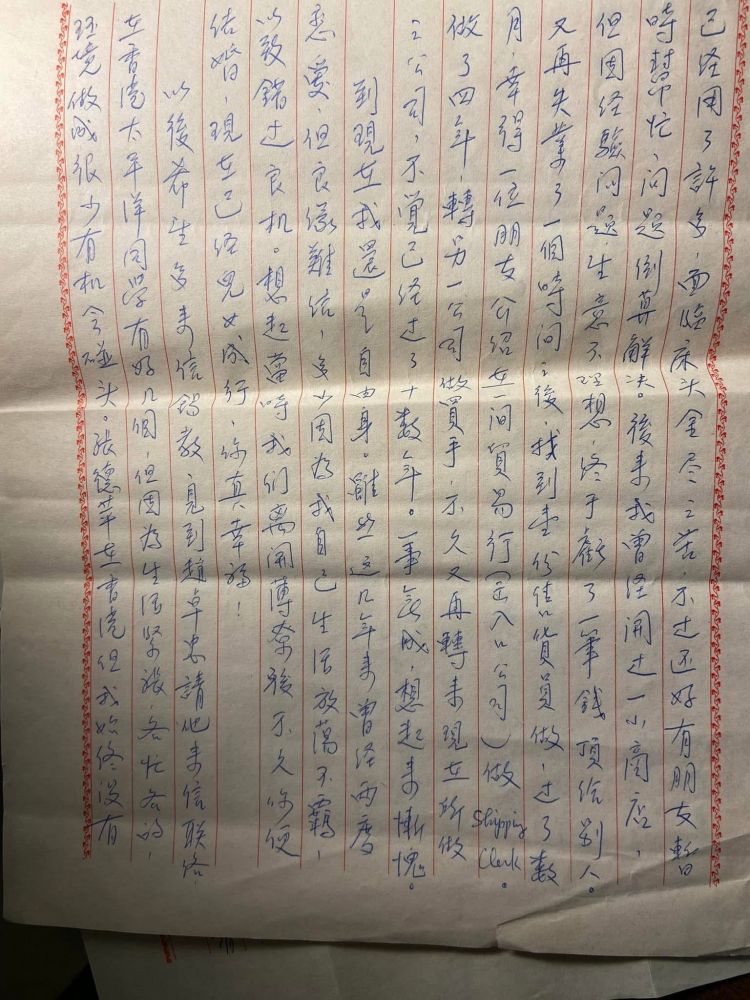 已经用了許多,面臨床头金尽之苦,不过还好有朋友暫
時幫忙,问题倒算解决。後来我曾经開过一小商店,
但因经驗问题,生意不理想,终于虧了一筆钱頂给别人。
又再失業了一個時间之後,找到壹份售貨員做,过了数
月,幸得一位朋友介绍在一间貿易行(出入口公司)做Shipping Clerk。
做了四年,轉另一公司做買手,不久又再轉来現在所做
之公司,不覺已经过了十数年。一事無成,想起来慚愧。
到現在我還是自由身。雖然這几年来曾经两度
恋愛,但良缘難结,多少因為我自己生活放荡不羈,
以致錯过良机。想起當時我们离開薄寮後不久你便
结婚,現在已经児女成行,你真幸福!
以後希望多来信賜教,見到趙卓忠請他来信联络.
在香港太平洋同学有好几個,但因為生活紧張,各忙各的,
环境做成很少有机会碰头。張德華在香港但我始终没有